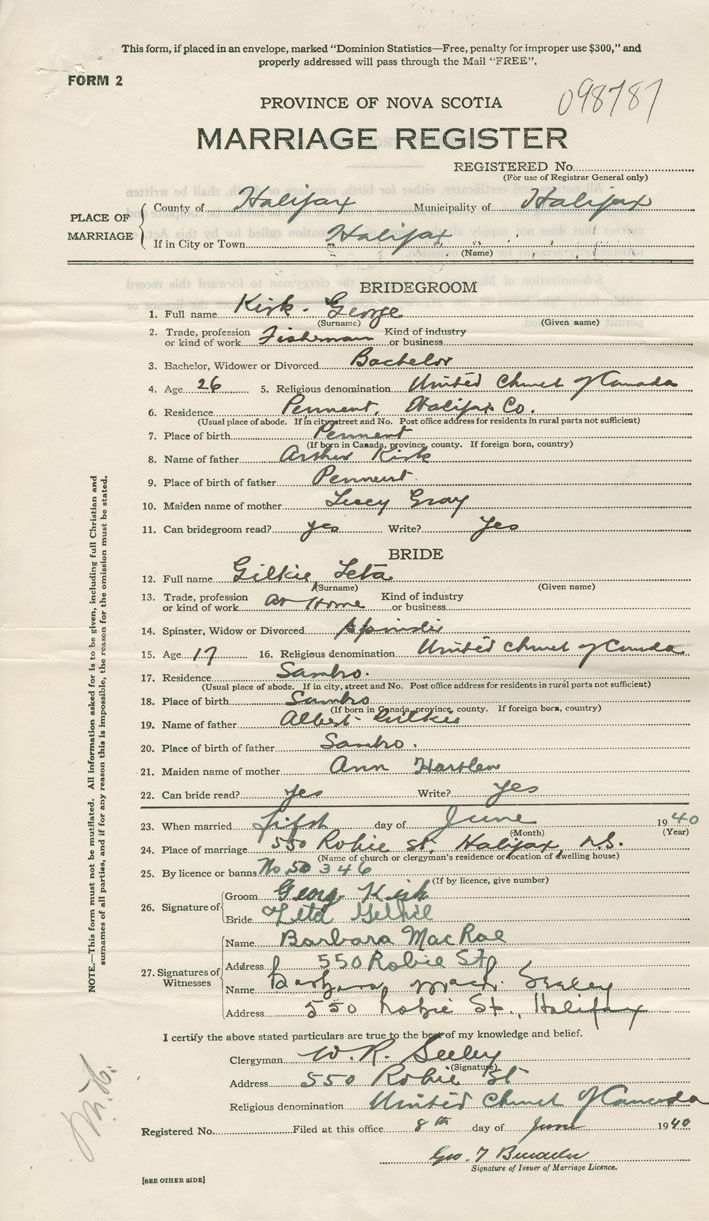 This form, if placed in an envelope, marked "Dominion Statistics—Free, penalty for improper use $300," and
properly addressed will pass through the Mail "FREE".
FORM 2
098787
PROVINCE OF NOVA SCOTIA
MARRIAGE REGISTER
REGISTERED No.
(For use of Registrar General only)
PLACE OF MARRIAGE
County of Halifax Municipality of Halifax
If in City or Town Halifax
(Name)
BRIDEGROOM
1. Full name Kirk - George
(Surname) (Given name)
2. Trade, profession or kind of work Fisherman Kind of industry or business
3. Bachelor, Widower or Divorced Bachelor
4. Age 26 5. Religious denomination United Church of Canada
6. Residence Pennent, Halifax Co.
(Usual place of abode. If in city street and No. Post office address for residents in rural parts not sufficient)
7. Place of birth Pennent
(If born in Canada, province, county. If foreign born, country)
8. Name of father Arthur Kirk
9. Place of birth of father Pennent
10. Maiden name of mother Gray
11. Can bridegroom read? yes Write? Yes
BRIDE
12. Full name Gilkie Leta
(Surname) (Given name)
13. Trade, profession or kind of work At Home Kind of industry or business
14. Spinster, Widow or Divorced
15. Age 17 16. Religious denomination United Church of Canada
17. Residence Sambro.
(Usual place of abode. If in city, street and No. Post office address for residents in rural parts not sufficient)
18. Place of birth Sambro
(If born in Canada, province, county. If foreign born, country)
19. Name of father Albert Gilkie
20. Place of birth of father Sambro.
21. Maiden name of mother Ann Hartlen
22. Can bride read? yes Write? Yes
23. When married day of June 1940
(Month) (Year)
24. Place of marriage 550 Robie St. Halifax, N.S.
(Name of church or clergyman's residence or location of dwelling house)
25. By licence or banns No 50346
(If by licence, give number)
26. Signature of
Groom George Kirk
Bride Leta Gilkie
27. Signatures of Witnesses
Name Barbara MacRae
Address 550 Robie St
Name Barbara Seeley
Address 550 Robie St., Halifax
I certify the above stated particulars are true to the best of my knowledge and belief.
Clergyman W. R. Seeley
(Signature)
Address 550 Robie St
Religious denomination United Church of Canada
Registered No. Filed at this office 8th day of June 1940
Geo. T
Signature of Issuer of Marriage Licence.
[SEE OTHER SIDE]
NOTE.—This form must not be mutilated. All information asked for is to be given, including full Christian and
surnames of all parties, and if for any reason this is impossible, the reason for the omission must be stated.